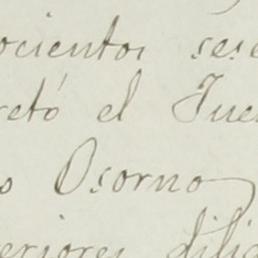 ocientos sese
retó el Jue
o Osorno
eriores dilig